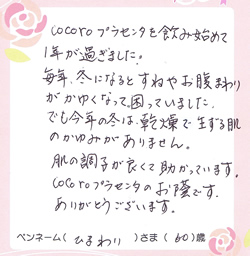 cocoroプラセンタを飲み始めて
1年が過ぎました。
毎年、冬になるとすねやお腹まわり
がかゆくなって困っていました。
でも今年の冬は、乾燥で生ずる肌
のかゆみがありません。
肌の調子が良くて助かっています。
cocoroプラセンタのお蔭です。
ありがとうございます。
ペンネーム(ひまわり)さま(60)歳